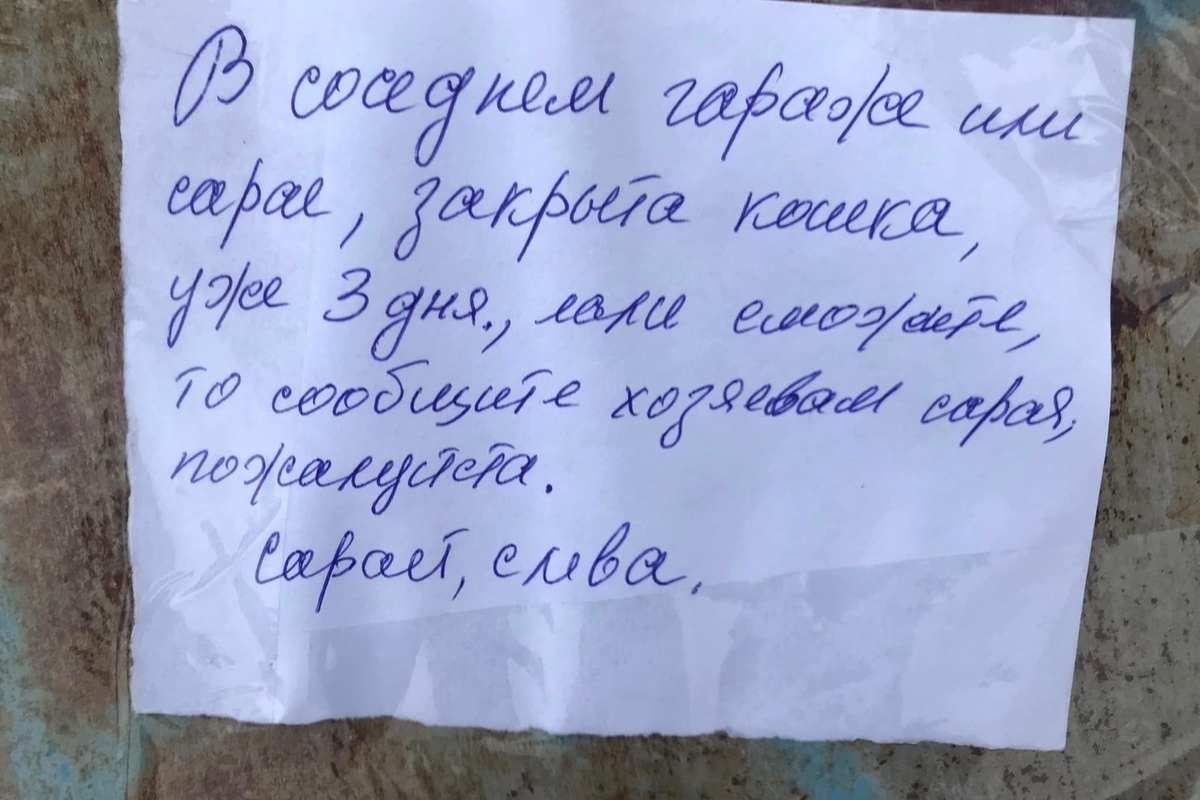 В соседнем гараже или
сарае, закрыта кошка,
уже 3 дня., если сможете,
то сообщите хозяевам сарая,
пожалуйста.
Сарай, слева.